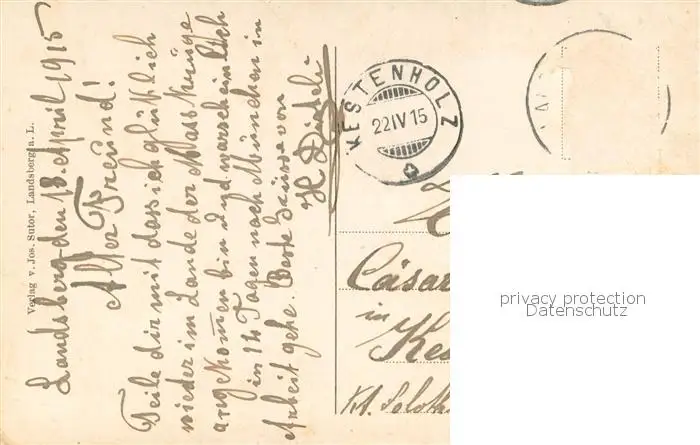 Verlag v. Jos. Sutor, Landsberg a. L.
Landsberg den 18. April 1915
Alter Freund!
Teile dir mit dass ich glüklich
wieder im Lande der Masskrüge
angekomen bin und warscheinlich
in 14 Tagen nach München in
Arbeit gehe. Beste Grüsse von
KESTENHOLZ
22 IV 15
Cäsar
in
Kes
Kt. Soloth
privacy protection
Datenschutz